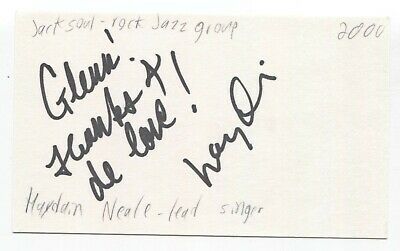 Jacksoul - rock Jazz group 2000
Glenn!
thanks &
de love!
Haydain Neale - lead singer